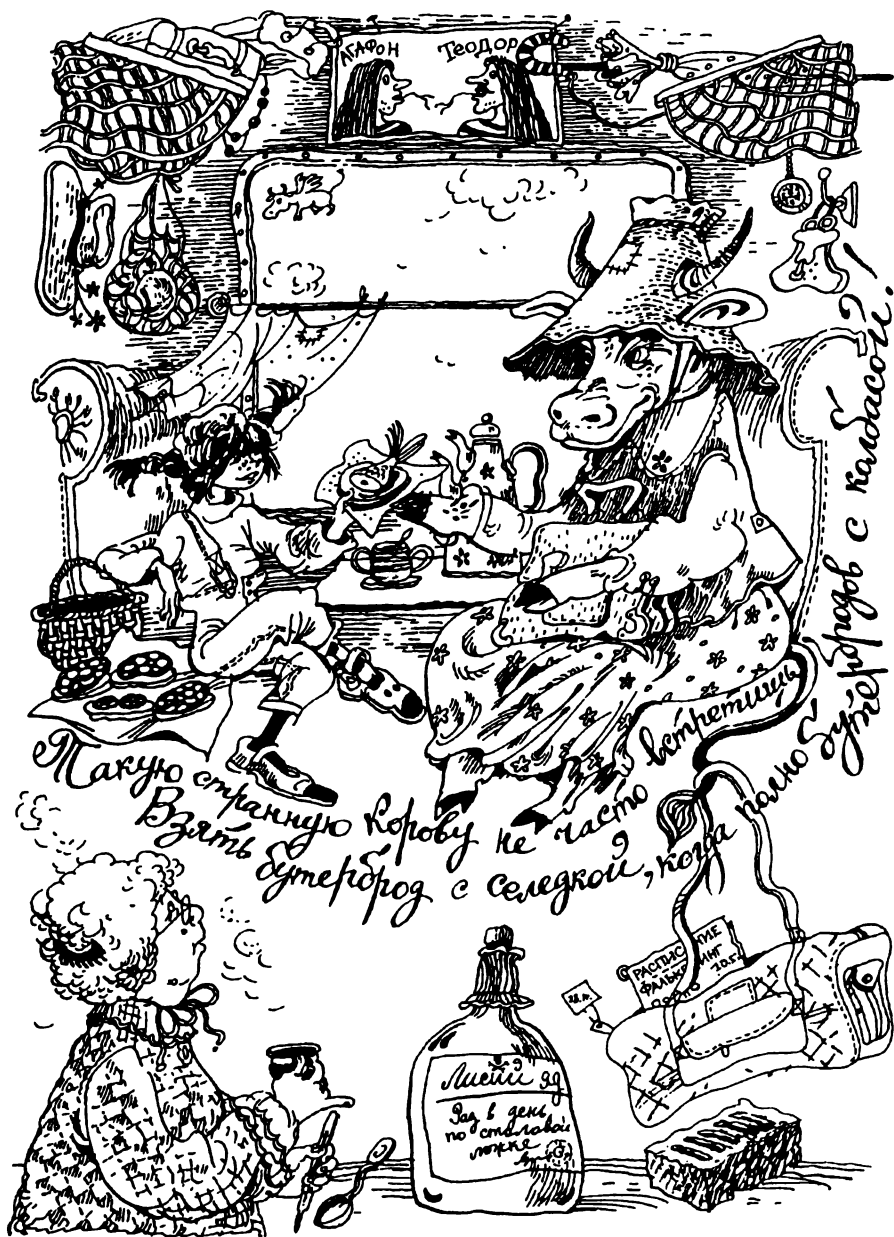 АГАФОН ТЕОДОР
Такую странную корову не часто встретишь
Взять бутерброд с селедкой, когда полно бутербродов с колбасой!
РАСПИСАНИЕ
ФАЛЬКЕНБЕРГ
Лисий яд
Раз в день
по столовой
ложке